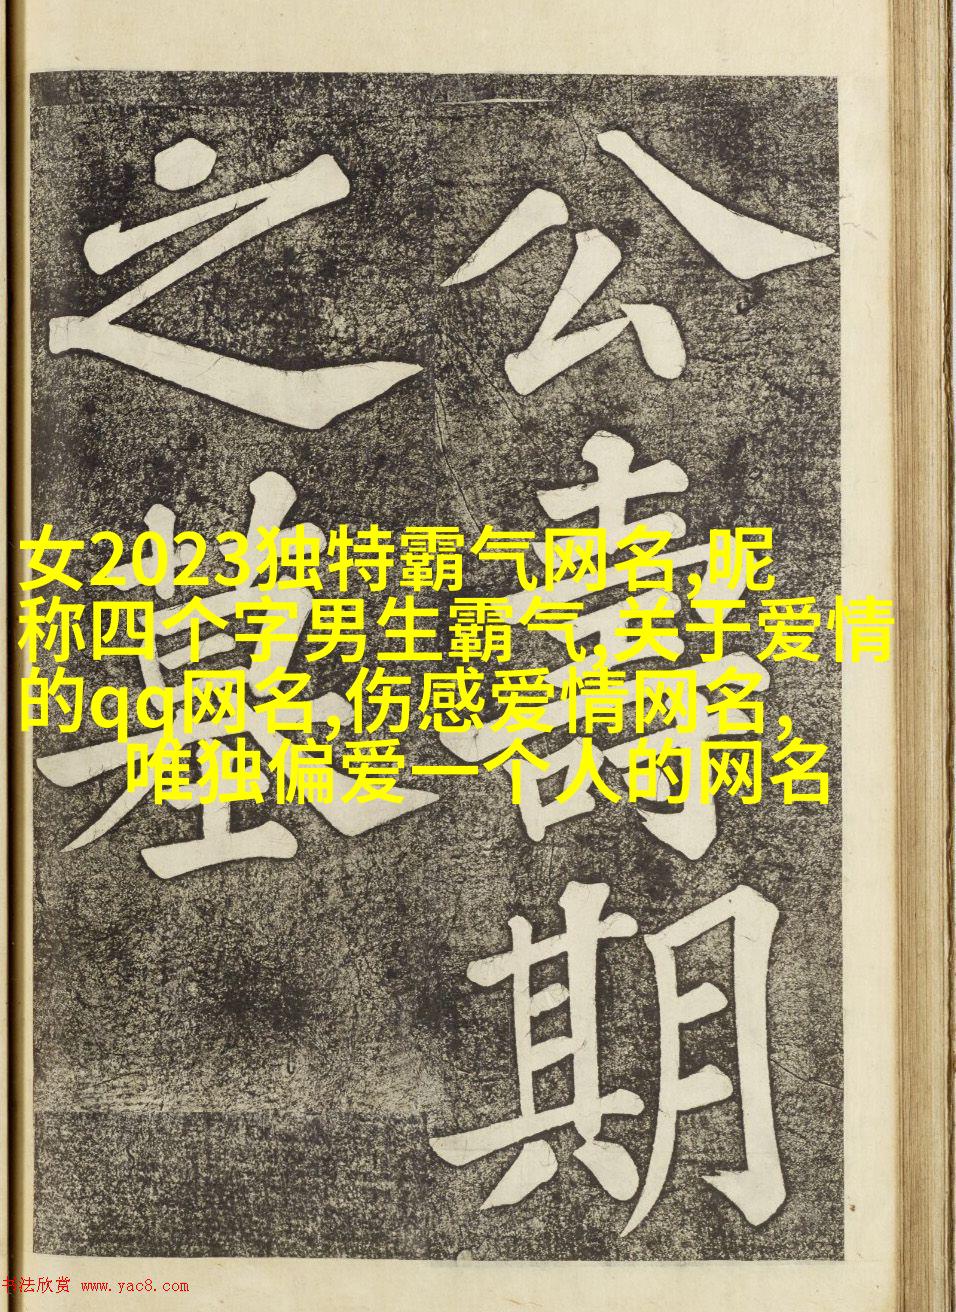 公壽期
之墓
女2023独特霸气网名,昵
称四个字男生霸气,关于爱情
的qq网名,伤感爱情网名,
唯独偏爱一个人的网名
书法欣赏 www.yac8.com